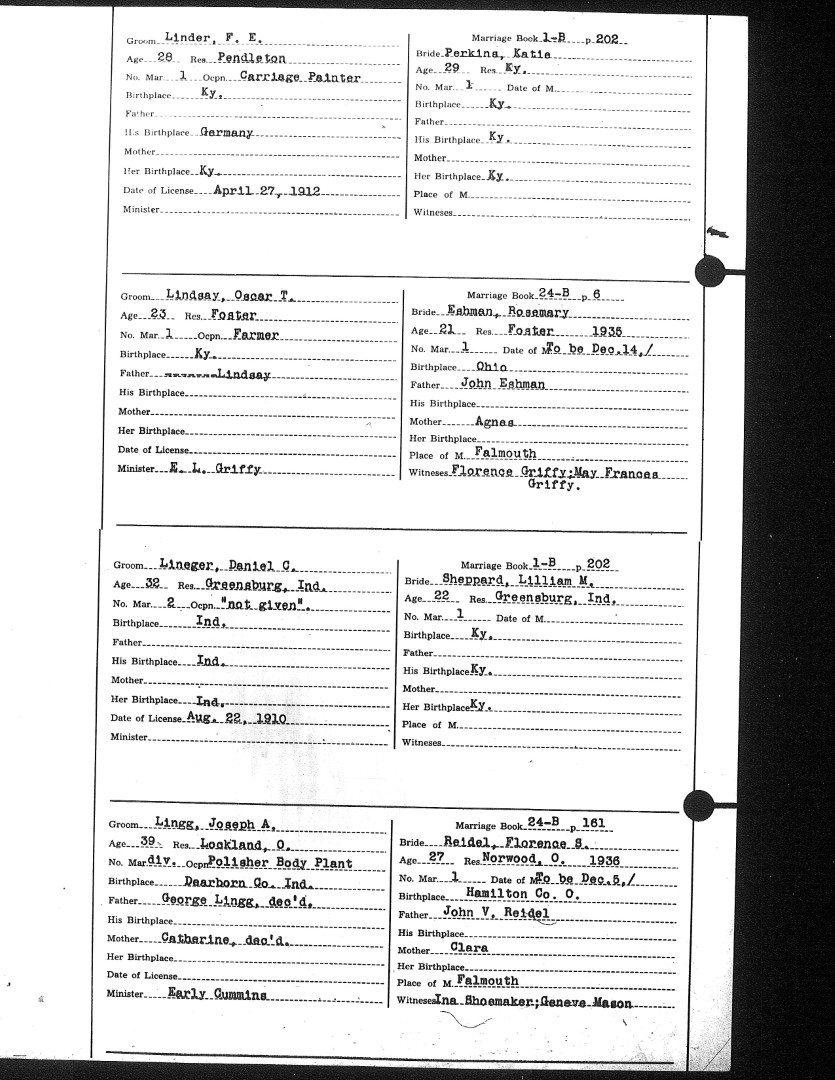 Groom Linder, F. E.
Age 28 Res. Pendleton
No. Mar 1 Ocpn. Carriage Painter
Birthplace Ky.
Father
His Birthplace Germany
Mother
Her Birthplace Ky.
Date of License April 27, 1912
Minister
Marriage Book 1-B p. 202
Bride Perkins, Katie
Age 29 Res. Ky.
No. Mar. 1 Date of M.
Birthplace Ky.
Father
His Birthplace Ky.
Mother
Her Birthplace Ky.
Place of M.
Witneses
Groom Lindsay, Oscar T.
Age 23 Res. Foster
No. Mar. 1 Ocpn. Farmer
Birthplace Ky.
Father -------Lindsay
His Birthplace
Mother
Her Birthplace
Date of License
Minister E. L. Griffy
Marriage Book 24-B p 6
Bride Eshman, Rosemary
Age 21 Res. Foster 1935
No. Mar. 1 Date of M. To be Dec.14,/
Birthplace Ohio
Father John Eshman
His Birthplace
Mother Agnes
Her Birthplace
Place of M. Falmouth
Witneses Florence Griffy;May Frances
Griffy.
Groom Lineger, Daniel C.
Age 32 Res. Greensburg, Ind.
No. Mar. 2 Ocpn. "not given".
Birthplace Ind.
Father
His Birthplace Ind.
Mother
Her Birthplace Ind.
Date of License Aug. 22, 1910
Minister
Marriage Book 1-B p. 202
Bride Sheppard, Lilliam M.
Age 22 Res. Greensburg, Ind.
No. Mar. 1 Date of M.
Birthplace Ky.
Father
His Birthplace Ky.
Mother
Her Birthplace Ky.
Place of M.
Witneses
Groom Lingg, Joseph A.
Age 39 Res. Lockland, O.
No. Mar div. Ocpn Polisher Body Plant
Birthplace Dearborn Co. Ind.
Father George Lingg, dec'd.
His Birthplace
Mother Catherine, dec'd.
Her Birthplace
Date of License
Minister Early Cummins
Marriage Book 24-B p 161
Bride Reidel, Florence S.
Age 27 Res. Norwood, O. 1936
No. Mar. 1 Date of M. To be Dec.5,/
Birthplace Hamilton Co. O.
Father John V. Reidel
His Birthplace
Mother Clara
Her Birthplace
Place of M. Falmouth
Witneses Ina Shoemaker;Geneve Mason